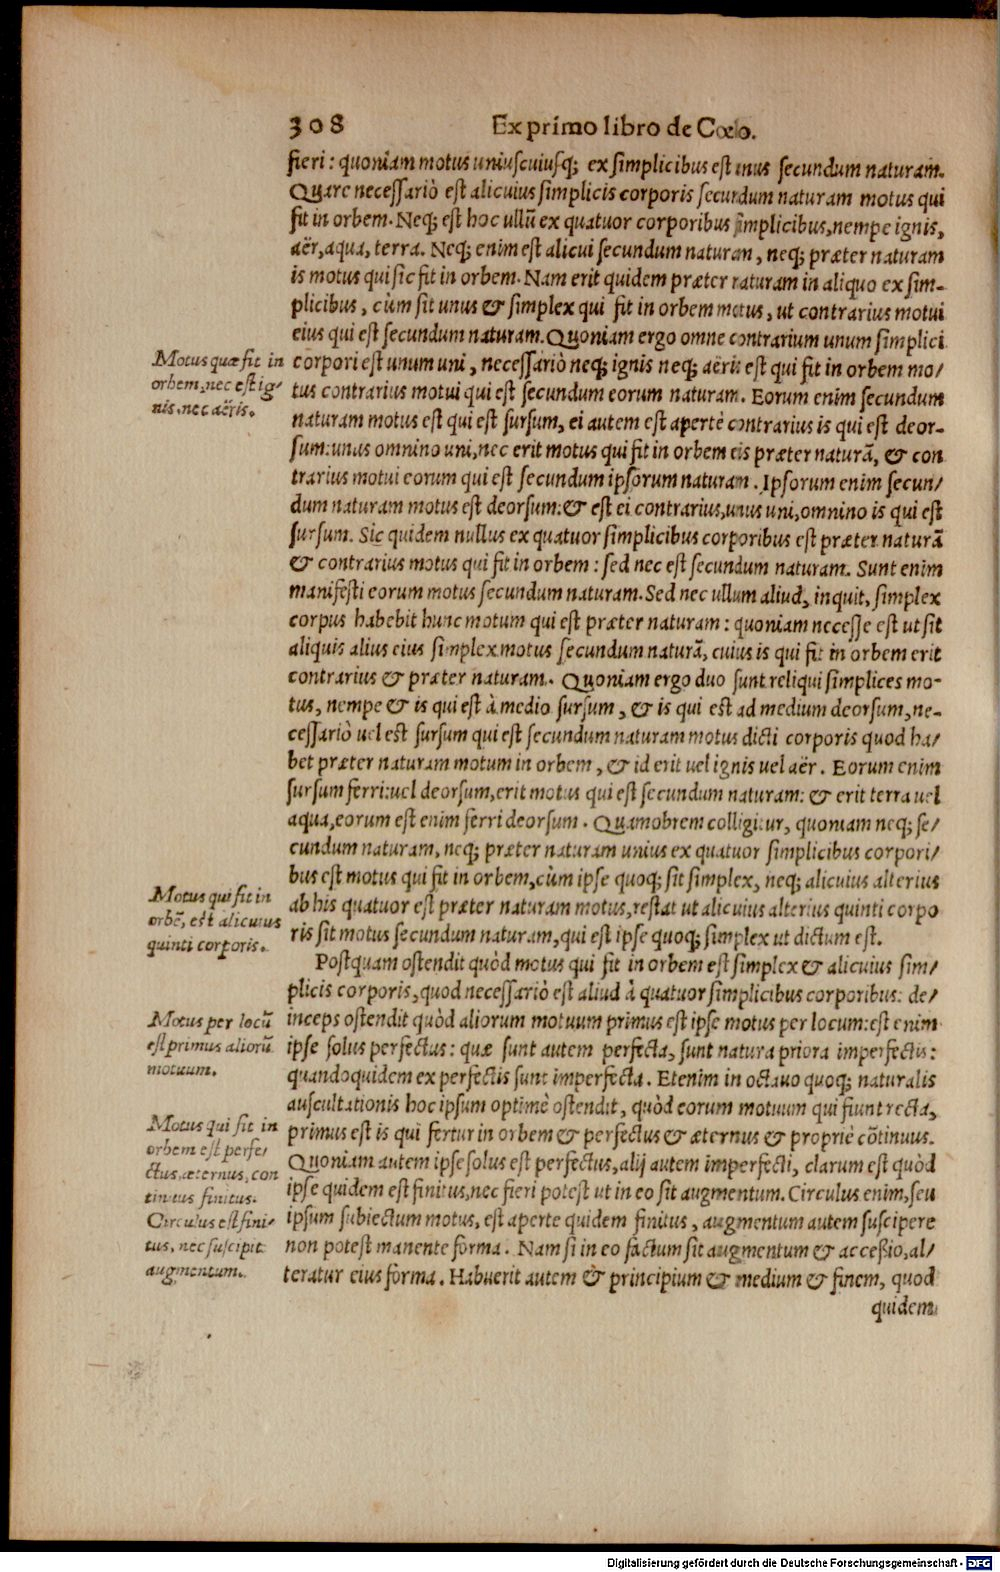 308 Ex primo libro de Cœlo.
fieri: quoniam motus uniuscuiusq; ex simplicibus est unus secundum naturam.
Quare necessariò est alicuius simplicis corporis secundum naturam motus qui
fit in orbem. Neq; est hoc ullũ ex quatuor corporibus simplicibus, nempe ignis,
aër, aqua, terra. Neq; enim est alicui secundum naturam, neq; præter naturam
is motus qui sic fit in orbem. Nam erit quidem præter naturam in aliquo ex sim-
plicibus, cùm sit unus & simplex qui fit in orbem motus, ut contrarius motui
eius qui est secundum naturam. Quoniam ergo omne contrarium unum simplici
corpori est unum uni, necessariò neq; ignis neq; aëris est qui fit in orbem mo/
tus contrarius motui qui est secundum eorum naturam. Eorum enim secundum
naturam motus est qui est sursum, ei autem est apertè contrarius is qui est deor-
sum: unus omnino uni, nec erit motus qui fit in orbem eis præter naturã, & con
trarius motui eorum qui est secundum ipsorum naturam. Ipsorum enim secun/
dum naturam motus est deorsum: & est ei contrarius, unus uni, omnino is qui est
sursum. Sic quidem nullus ex quatuor simplicibus corporibus est præter naturã
& contrarius motus qui fit in orbem: sed nec est secundum naturam. Sunt enim
manifesti eorum motus secundum naturam. Sed nec ullum aliud, inquit, simplex
corpus habebit hunc motum qui est præter naturam: quoniam necesse est ut sit
aliquis alius eius simplex motus secundum naturã, cuius is qui fit in orbem erit
contrarius & præter naturam. Quoniam ergo duo sunt reliqui simplices mo-
tus, nempe & is qui est à medio sursum, & is qui est ad medium deorsum, ne-
cessariò uel est sursum qui est secundum naturam motus dicti corporis quod ha/
bet præter naturam motum in orbem, & id erit uel ignis uel aër. Eorum enim
sursum ferri: uel deorsum, erit motus qui est secundum naturam: & erit terra uel
aqua, eorum est enim ferri deorsum. Quamobrem colligitur, quoniam neq; se/
cundum naturam, neq; præter naturam unius ex quatuor simplicibus corpori/
bus est motus qui fit in orbem, cùm ipse quoq; sit simplex, neq; alicuius alterius
ab his quatuor est præter naturam motus, restat ut alicuius alterius quinti corpo
ris sit motus secundum naturam, qui est ipse quoq; simplex ut dictum est.
Postquam ostendit quòd motus qui fit in orbem est simplex & alicuius sim/
plicis corporis, quod necessariò est aliud à quatuor simplicibus corporibus: de/
inceps ostendit quòd aliorum motuum primus est ipse motus per locum: est enim
ipse solus perfectus: quæ sunt autem perfecta, sunt natura priora imperfectis:
quandoquidem ex perfectis sunt imperfecta. Etenim in octauo quoq; naturalis
auscultationis hoc ipsum optimè ostendit, quòd eorum motuum qui fiunt recta,
primus est is qui fertur in orbem & perfectus & æternus & propriè cõtinuus.
Quoniam autem ipse solus est perfectus, alij autem imperfecti, clarum est quòd
ipse quidem est finitus, nec fieri potest ut in eo sit augmentum. Circulus enim, seu
ipsum subiectum motus, est aperte quidem finitus, augmentum autem suscipere
non potest manente forma. Nam si in eo factum sit augmentum & accessio, al/
teratur eius forma. Habuerit autem & principium & medium & finem, quod
quidem
Motus quæ fit in
orbem, nec est ig-
nis, nec aëris.
Motus qui fit in
orbẽ, est alicuius
quinti corporis.
Motus per locũ
est primus aliorũ
motuum.
Motus qui fit in
orbem est perfe/
ctus, æternus, con
tinuus finitus.
Circulus est fini/
tus, nec suscipit
augmentum.
Digitalisierung gefördert durch die Deutsche Forschungsgemeinschaft - DFG